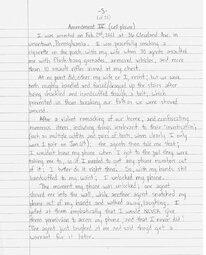 -3-
(of 21)
Amendment IV (cell phone)
I was arrested on Feb 27th, 2021 at 36 Cleveland Ave. in
Uniontown, Pennsylvania. I was peacefully smoking a
cigarette on the porch with my wife when 20 agents assaulted
me with flash-bang grenades, armored vehicles, and more
than 10 assault rifles aimed at my chest.
At no point did either my wife or I, resist; but we were
both roughly handled and forced/dragged up the stairs after
being shackled and handcuffed through a belt, which
prevented us from breaking our falls as we were shoved
around.
After a violent ransacking of our home, and confiscating
numerous items, including things irrelevant to their "investigation",
(such as multiple outfits and pairs of boots, when clearly I only
wore 1 pair on Jan. 6th), the agents then told me that;
I wouldn't have my phone when I got to the jail they were
taking me to, so if I needed to get any phone numbers out
of it; I better do it right then. So, with my hands still
handcuffed to my waist; I unlocked my phone.
The moment my phone was unlocked; one agent
shoved me into the wall, while another agent snatched my
phone out of my hands and walked away, laughing. I
yelled at them emphatically that I would NEVER give
them permission to enter my phone, and that I never did!
The agent just laughed at me and said they'd get a
warrant for it later.